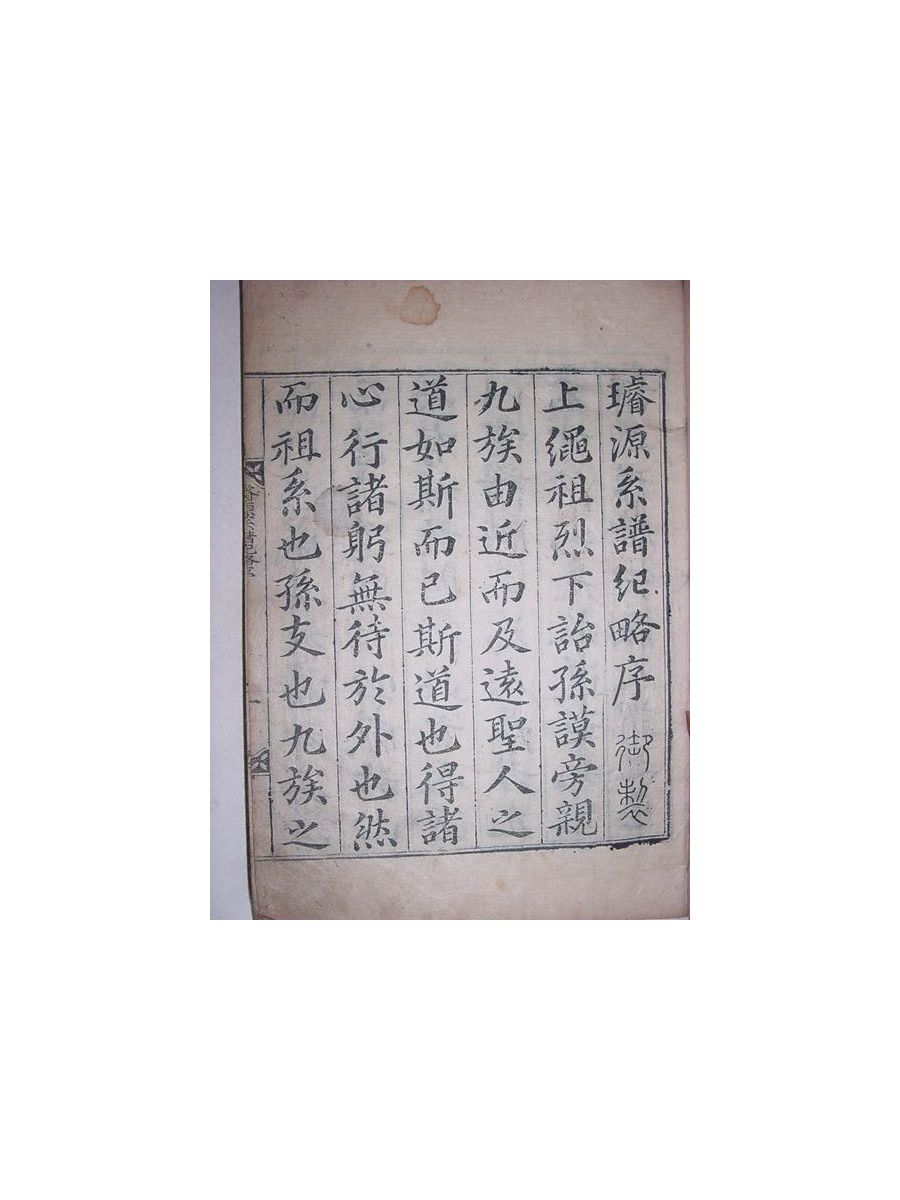 璿源系譜紀略序 御製
上繩祖烈下詒孫謨旁親
九族由近而及遠聖人之
道如斯而已斯道也得諸
心行諸躬無待於外也然
而祖系也孫支也九族之